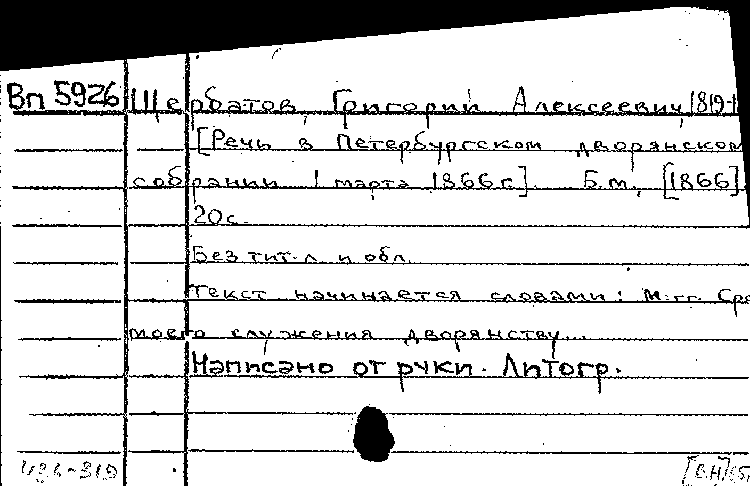 Вп 5926 Щербатов, Григорий Алексеевич, 1819-1
[Речь в Петербургском дворянском
собрании 1 марта 1866 г.]. Б.м., [1866].
20 с.
Без тит. л. и обл.
Текст начинается словами: М. гг. Сро
моего служения дворянству...
Написано от руки. Литогр.